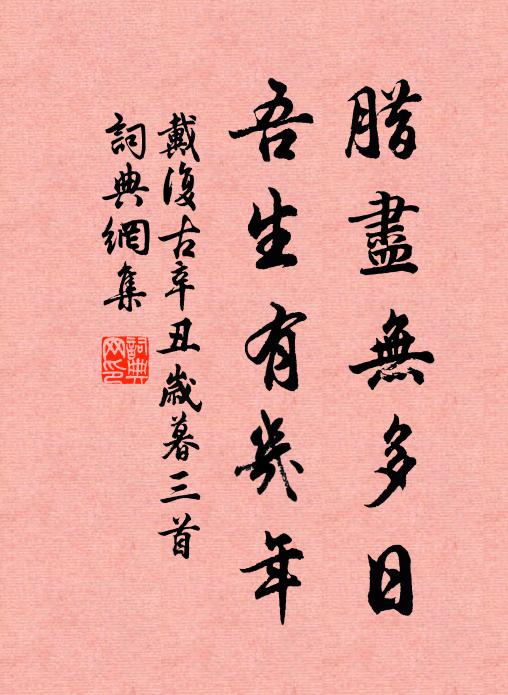 腊盡無多日
吾生有幾年
戴復古辛丑歲暮三首
詞典網集
詞典網印